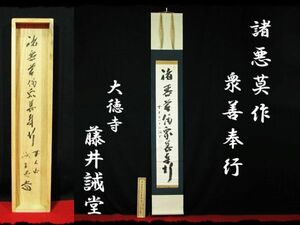 諸悪莫作
衆善奉行
大徳寺
藤井誠堂
諸悪莫作衆善奉行
諸悪莫作衆善奉行